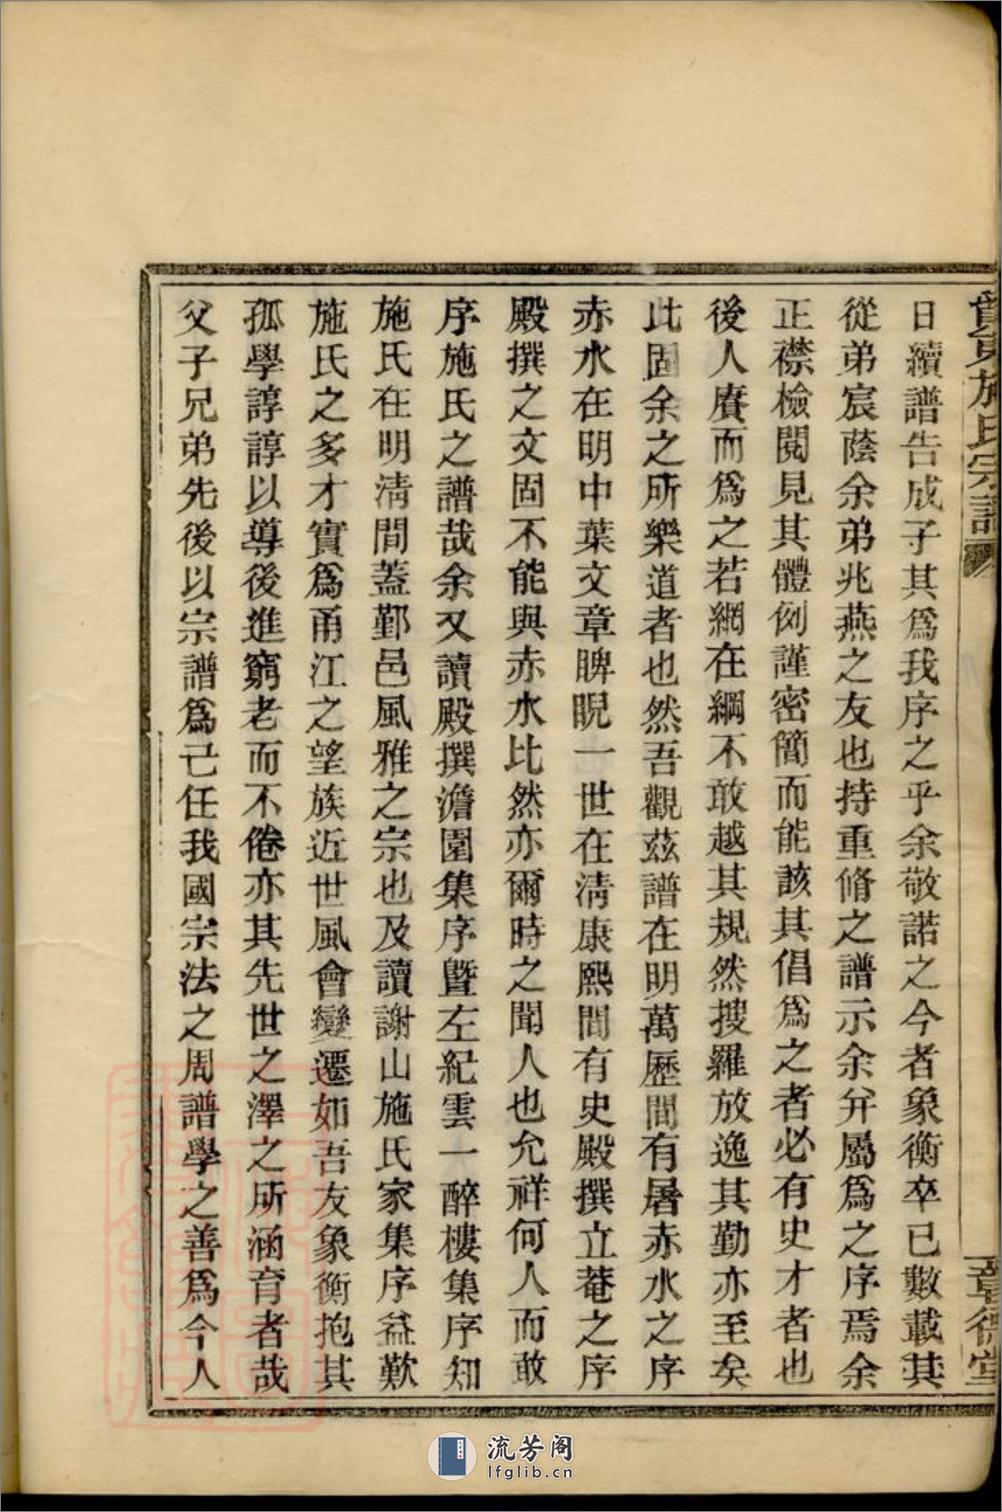 施氏宗譜
日續譜告成子其為我序之乎余敬諾之今者象衡卒已數載其
從弟宸蔭余弟兆燕之友也持重脩之譜示余弁屬為之序焉余
正襟檢閱見其體例謹密簡而能該其倡為之者必有史才者也
後人賡而為之若網在綱不敢越其規然搜羅放逸其勤亦至矣
此固余之所樂道者也然吾觀茲譜在明萬歷間有屠赤水之序
赤水在明中葉文章睥睨一世在淸康熙間有史殿撰立菴之序
殿撰之文固不能與赤水比然亦爾時之聞人也允祥何人而敢
序施氏之譜哉余又讀殿撰澹園集序曁左紀雲一醉樓集序知
施氏在明淸間蓋鄞邑風雅之宗也及讀謝山施氏家集序益歎
施氏之多才實為甬江之望族近世風會變遷如吾友象衡抱其
孤學諄諄以導後進窮老而不倦亦其先世之澤之所涵育者哉
父子兄弟先後以宗譜為己任我國宗法之周譜學之善為今人
德堂
流芳阁
lfglib.cn